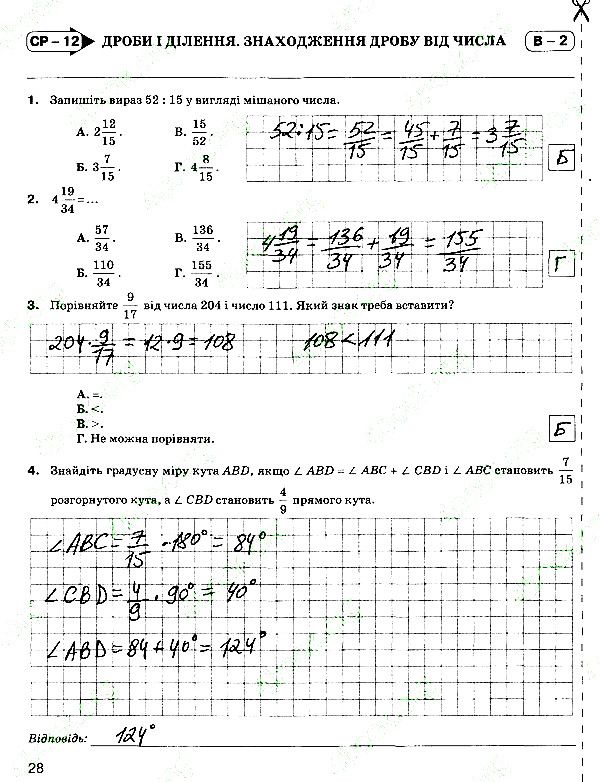 СР – 12 ДРОБИ І ДІЛЕННЯ. ЗНАХОДЖЕННЯ ДРОБУ ВІД ЧИСЛА В – 2
1. Запишіть вираз 52 : 15 у вигляді мішаного числа.
А. 2 12/15. В. 15/52.
Б. 3 7/15. Г. 4 8/15.
52:15 = 52/15 = 45/15 + 7/15 = 3 7/15
Б
2. 4 19/34 = ...
А. 57/34. В. 136/34.
Б. 110/34. Г. 155/34.
4 19/34 = 136/34 + 19/34 = 155/34
Г
3. Порівняйте 9/17 від числа 204 і число 111. Який знак треба вставити?
204 · 9/17 = 12 · 9 = 108 108 < 111
А. =.
Б. <.
В. >.
Г. Не можна порівняти.
Б
4. Знайдіть градусну міру кута ABD, якщо ∠ ABD = ∠ ABC + ∠ CBD і ∠ ABC становить 7/15
розгорнутого кута, а ∠ CBD становить 4/9 прямого кута.
∠ABC = 7/15 · 180° = 84°
∠CBD = 4/9 · 90° = 40°
∠ABD = 84 + 40° = 124°
Відповідь: 124°
28